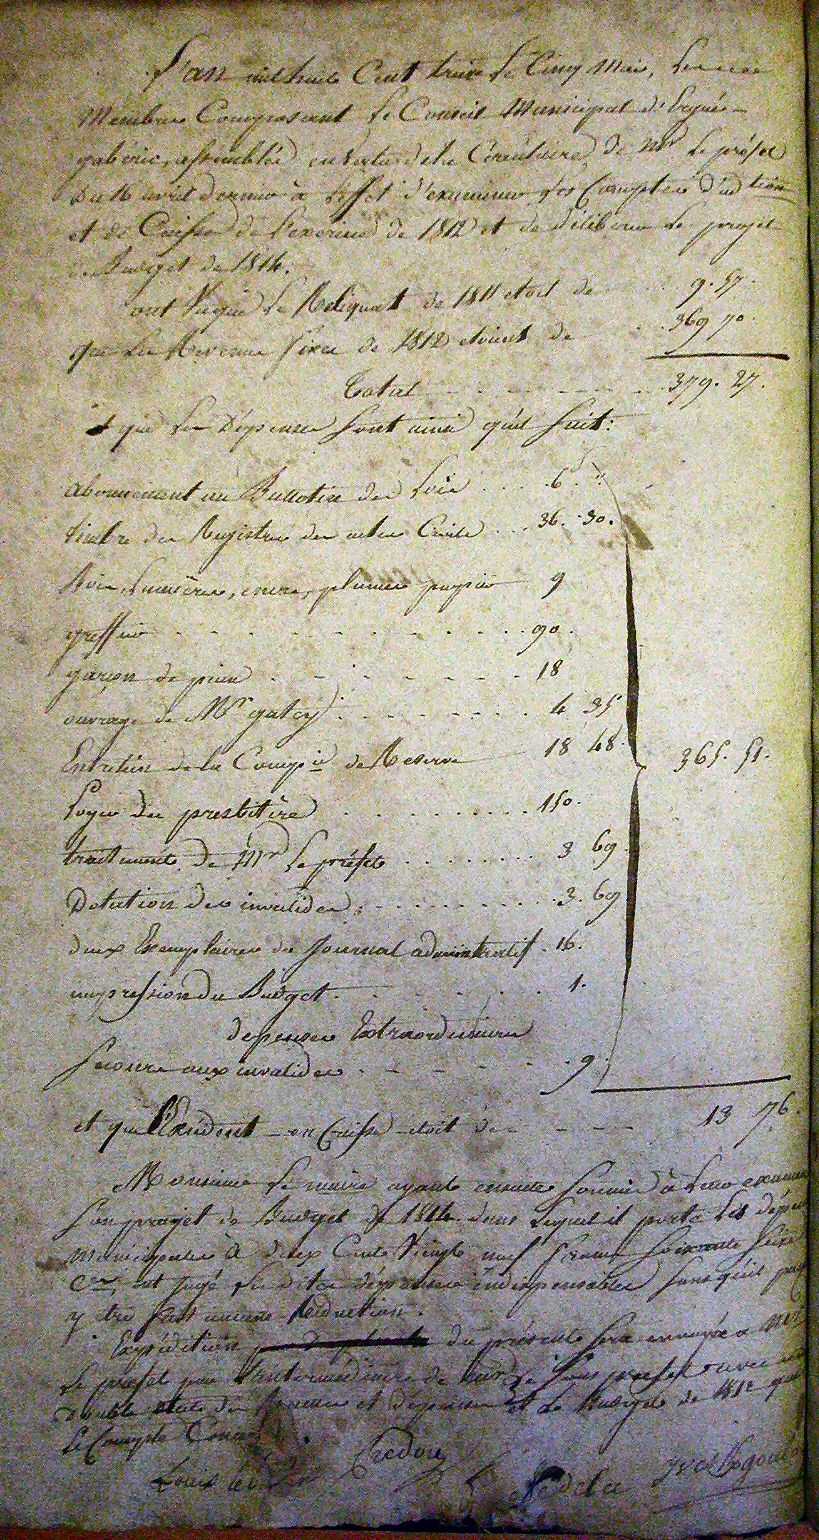 L'an mil huit Cent treize Le Cinq Mai, Les
Membres Composant Le Conseil Municipal d'Ergué-
gabéric, assemblés en vertu de la Circulaire de Mr Le préfet
du avril dernier à L'effet d'examiner Les Comptes d'
et de Caisse de L'exercice de 1812 et de délibérer Le projet
Budget de 1814.
ont Le Reliquat de 1811 etoit de 9. 57.
que Les Revenus fixes de 1812 etoient de 369 70.
Total 379. 27.
que Les Dépenses sont ainsi qu'il suit:
abonnement au Bulletin des Lois 6.
timbre des Registres des actes Civils 36. 30.
Bois, Lumières, encre, plumes papier 9
greffier 90.
garçon de peine 18
ouvrage de Mr gatey 4 35
Entretien de la Compie de Reserve 18 48. 365. 51.
Loyer du presbitère 150.
traitement de Mr Le préfet 3 69
Dotation des invalides 3. 69
deux Exemplaires du Journal administratif 16.
impression du Budget 1.
depenses Extraordinaires
secours aux invalides 9.
et que L'Exédent en Caisse etoit de 13 76.
Monsieur Le maire ayant ensuite soumis à Leur examen
son projet de Budget de 1814 dans Lequel il porte Les dépenses
municipales à deux Cents Vingt neuf francs soixante seize
Cmes ont jugé Les dites dépenses indispensables sans qu'il
y être fait aucune Réduction.
Expédition du présente sera envoyée a Mr
Le préfet par L'intermédiaire de Le sous prefet avec
double etats des Revenus et dépenses et Le Budget de 1812
Le Compte
Louis Credou
Yves Le goulven